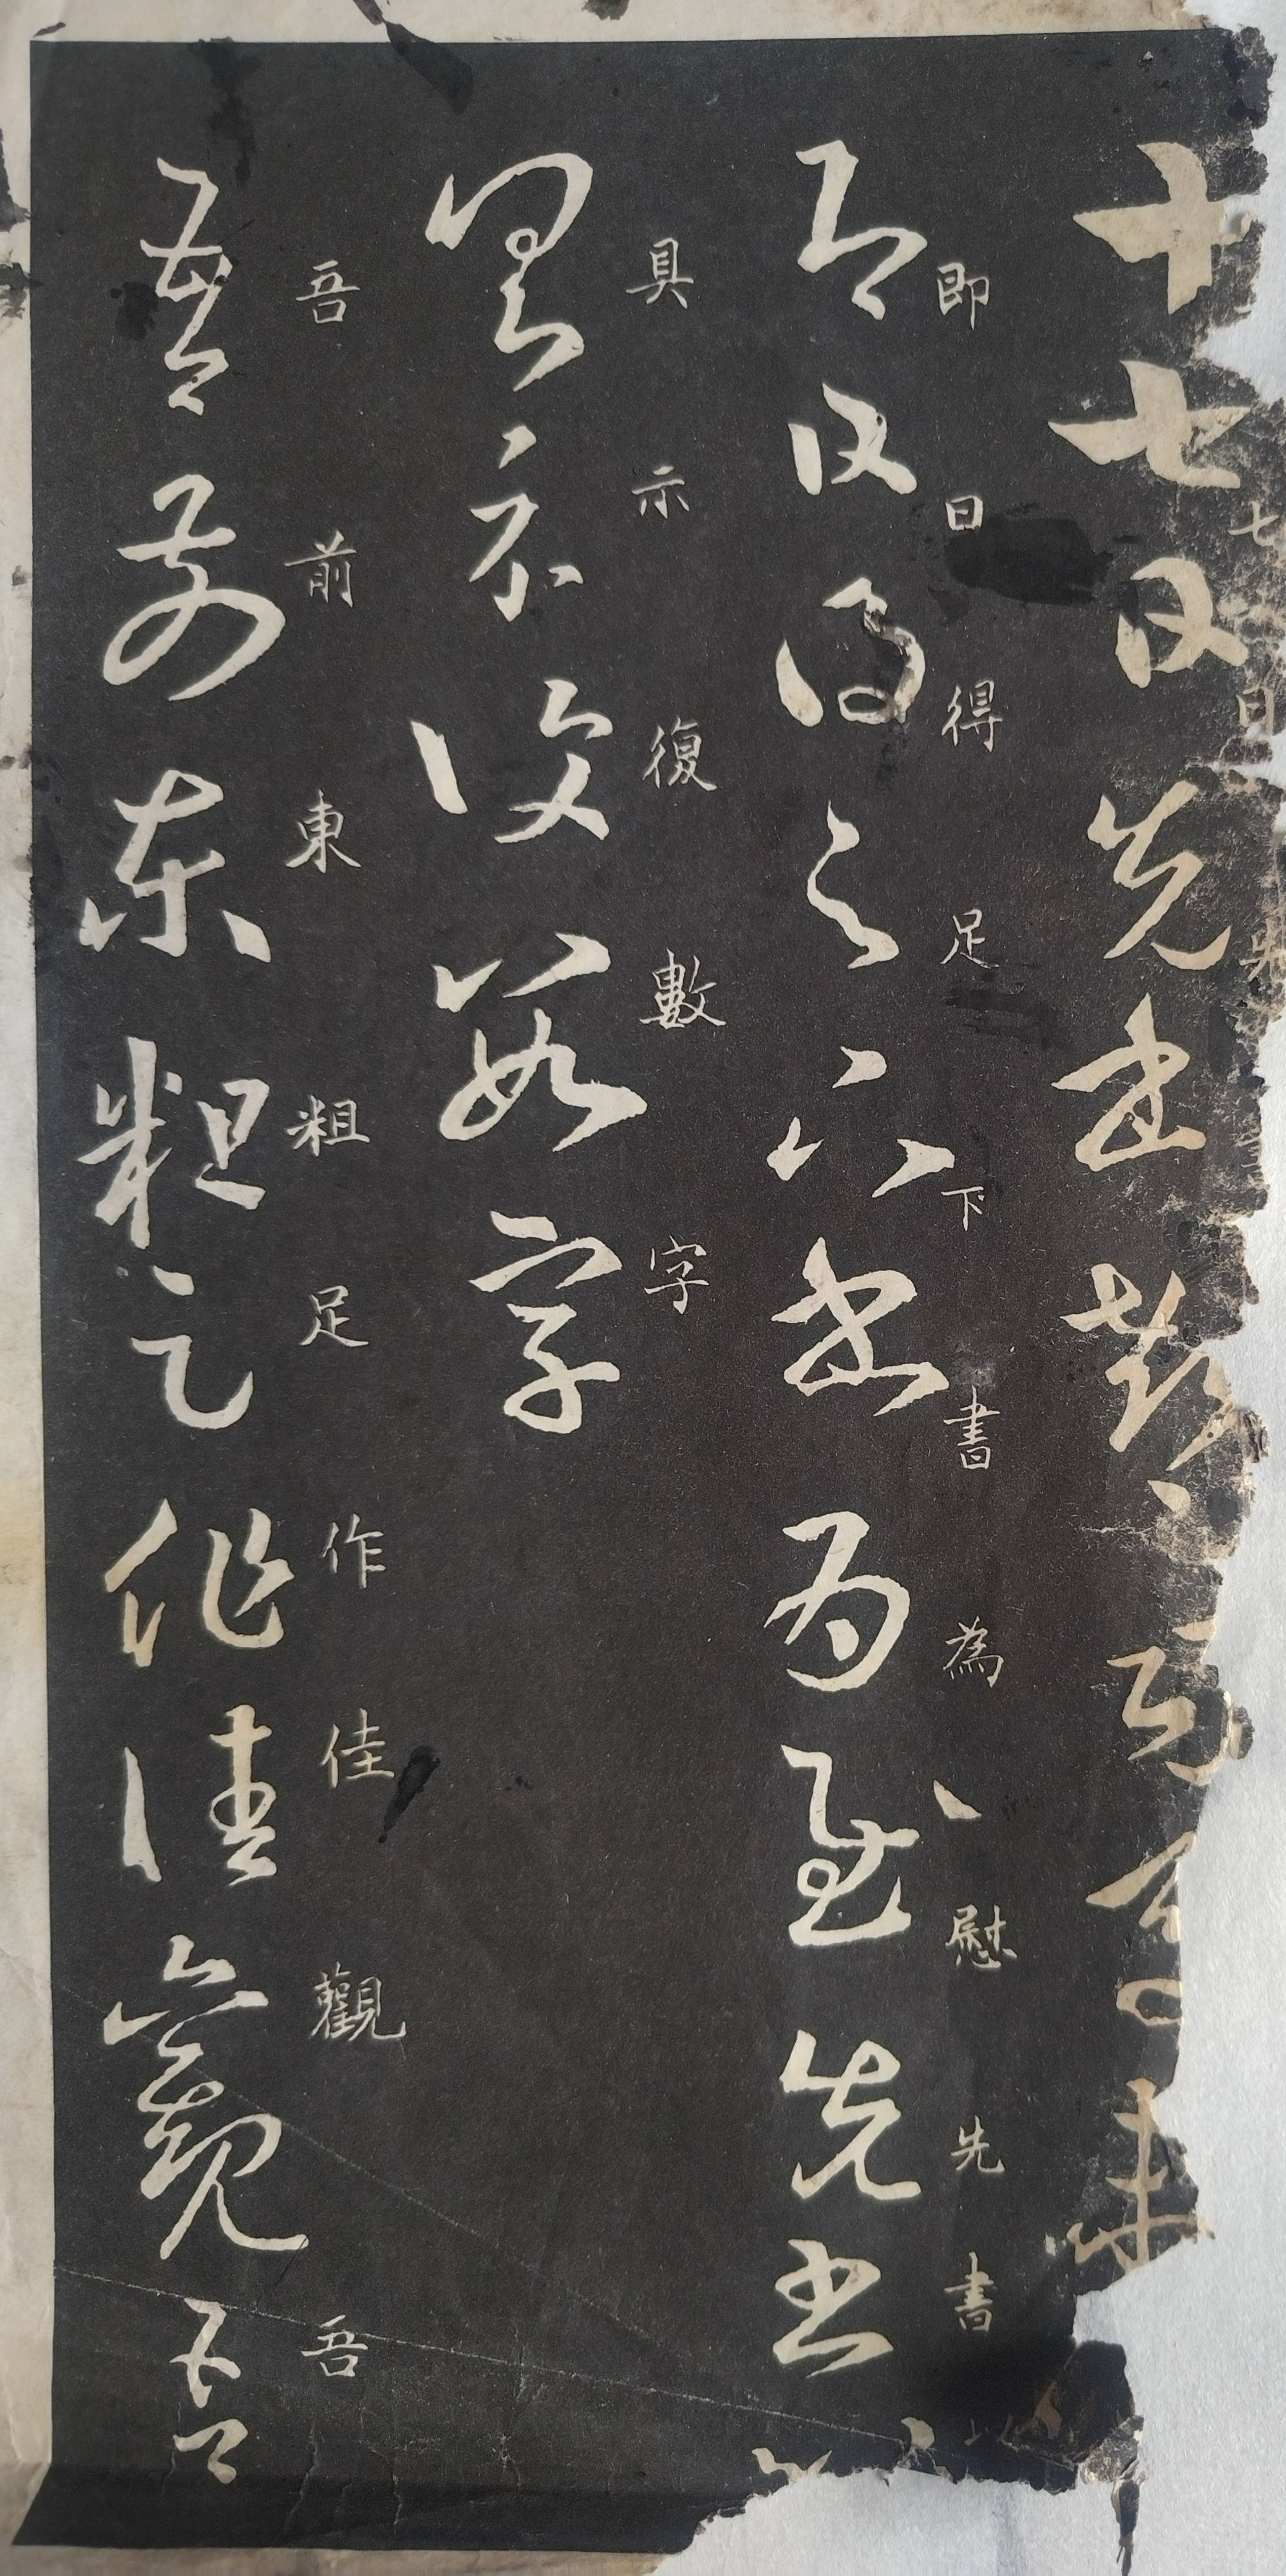 七日
十七日先書郗司馬未
即日得足下書為慰先書以
即日得足下書為慰先書以
具示復數字
具示復數字
吾前東粗足作佳觀吾
吾前東粗足作佳觀吾